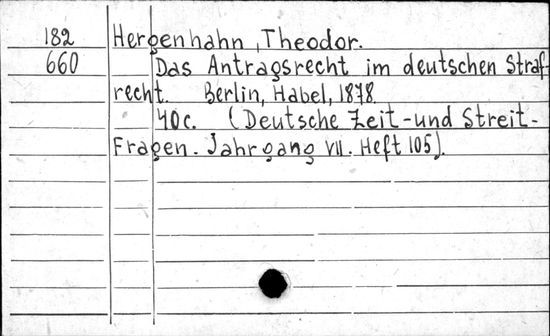 182 Hergenhahn, Theodor.
660 Das Antragsrecht im deutschen Straf-
recht. Berlin, Habel, 1878.
40c. (Deutsche Zeit-und Streit-
Fragen. Jahrgang VII. Heft 105).